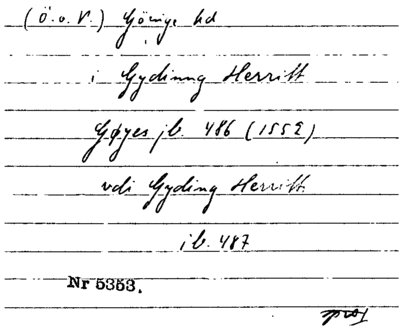 (Ö. o. V.) Göinge hd
i Gydinng Herritt
Gøyes jb. 486 (1552)
vdi Gyding Herritt
ib. 487
Nr 5353.